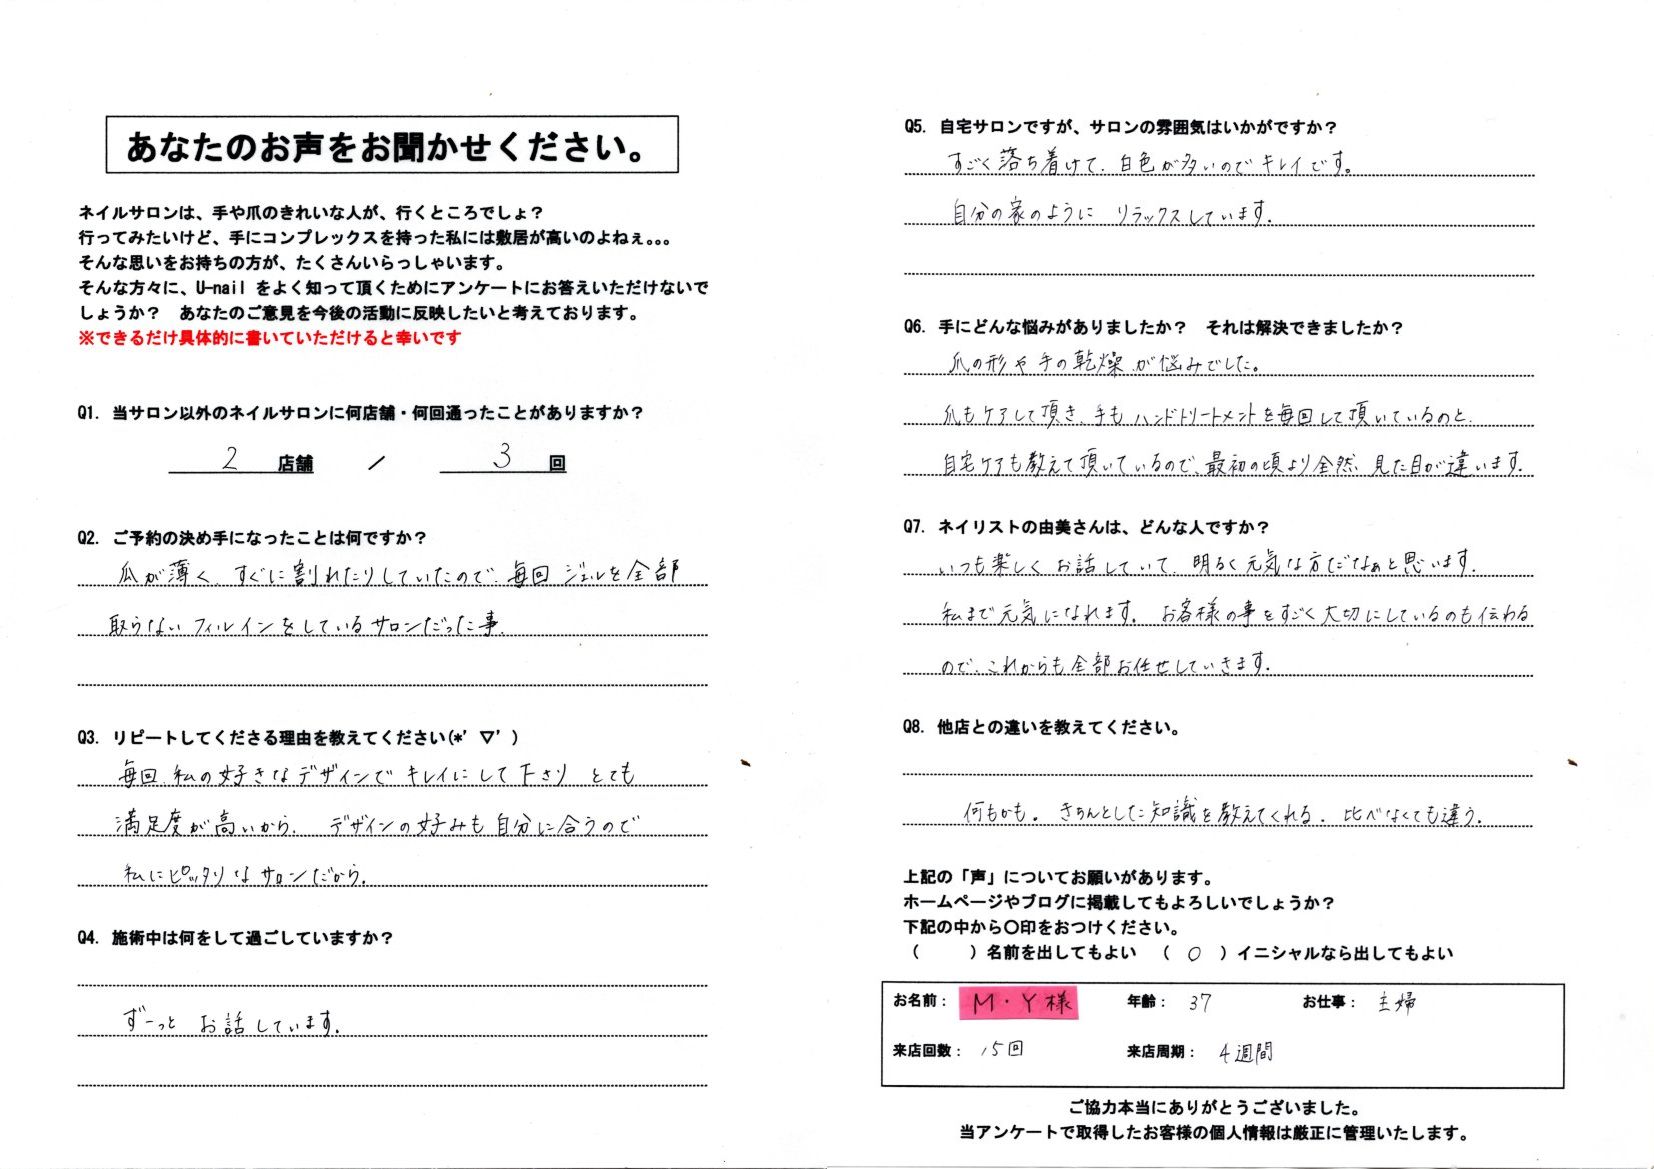 あなたのお声をお聞かせください。
ネイルサロンは、手や爪のきれいな人が、行くところでしょ？
行ってみたいけど、手にコンプレックスを持った私には敷居が高いのよねぇ。。。
そんな思いをお持ちの方が、たくさんいらっしゃいます。
そんな方々に、U-nail をよく知って頂くためにアンケートにお答えいただけないで
しょうか？　あなたのご意見を今後の活動に反映したいと考えております。
※できるだけ具体的に書いていただけると幸いです
Q1. 当サロン以外のネイルサロンに何店舗・何回通ったことがありますか？
2 店舗 ／ 3 回
Q2. ご予約の決め手になったことは何ですか？
爪が薄く、すぐに割れたりしていたので、毎回ジェルを全部
取らないフィルインをしているサロンだった事。
Q3. リピートしてくださる理由を教えてください(*' ▽' )
毎回、私の好きなデザインでキレイにして下さり とても
満足度が高いから。 デザインの好みも自分に合うので
私にピッタリなサロンだから。
Q4. 施術中は何をして過ごしていますか？
ずーっと お話しています。
Q5. 自宅サロンですが、サロンの雰囲気はいかがですか？
すごく落ち着けて、白色が多いのでキレイです。
自分の家のように リラックスしています。
Q6. 手にどんな悩みがありましたか？　それは解決できましたか？
爪の形や手の乾燥が悩みでした。
爪もケアして頂き、手もハンドトリートメントを毎回して頂いているのと、
自宅ケアも教えて頂いているので、最初の頃より全然、見た目が違います。
Q7. ネイリストの由美さんは、どんな人ですか？
いつも楽しくお話していて、明るく元気な方だなぁと思います。
私まで元気になれます。 お客様の事をすごく大切にしているのも伝わる
ので、これからも全部お任せしていきます。
Q8. 他店との違いを教えてください。
何もかも。きちんとした知識を教えてくれる。比べなくても違う。
上記の「声」についてお願いがあります。
ホームページやブログに掲載してもよろしいでしょうか？
下記の中から〇印をおつけください。
（　　　）名前を出してもよい　（ ○ ）イニシャルなら出してもよい
お名前： M・Y様 年齢： 37 お仕事： 主婦
来店回数： 15回 来店周期： 4週間
ご協力本当にありがとうございました。
当アンケートで取得したお客様の個人情報は厳正に管理いたします。